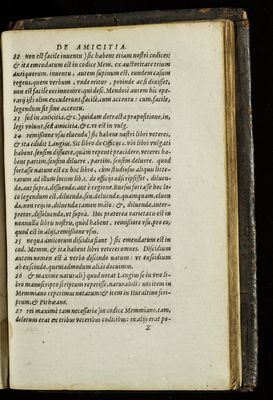 DE AMICITIA.
22 non est facile inuentu) sic habent etiam nostri codices:
& ita emendatum est in codice Mem. ex auctoritate trium
antiquorum. inuentu, autem supinum est, eundem casum
regens, quem verbum, vnde oritur, proinde ac si dixisset,
non est facile eos inuenire, qui &c. Mendosè autem hic ope-
rarij isti olim excuderunt, facilè, cum accentu: cum, facile,
legendum sit sine accentu.
23 sed in amicitia, &c.) quidam detracta præpositione, in,
legi volunt, sed amicitia, &c. vt est in vulg.
24 remissione vsus eluenda) sic habent nostri libri veteres,
& ita edidit Langius. Sic libro de Officijs 1. vbi libri vulgati
habent, sensim dissuere, quàm repentè præcidere, veteres ha-
bent partim, sensim diluere, partim, sensim deluere. quod
fortasse natum est ex hoc libro, cum studiosus aliquis litte-
rarum ad illum locum lib. 1. de officijs adscripsisset, diluen-
da, aut supra, dissuenda, aut è regione. Rursus fortasse hoc lo-
co legendum est, diluenda, seu, deluenda, quamquam, eluen-
da, non reijcio, diluenda tamen malo: &, diluenda, inter-
pretor, dissoluenda, vt suprà. Hoc præterea varietatis est in
nonnullis libris nostris, quòd habent, remissiore vsu, pro eo,
quod est in alijs, remissione vsus.
25 nequa amicorum discidia fiant) sic emendatum est in
cod. Memm. & ita habent libri veteres omnes. Discidium
autem nomen est à verbo discindo natum: vt exsidium
ab exscindo, quemadmodum aliàs docuimus.
26 & maximè naturali) quod notat Langius se in vno li-
bro manuscripto scriptum reperisse, naturabili: nos item in
Memmiano reperimus notatum: & item in Huraltino scri-
ptum, & Pithœano.
27 rei maximè tam necessariæ) in codice Memmiano, tam,
deletum erat ex tribus veteribus codicibus: in alijs erat po-
Z